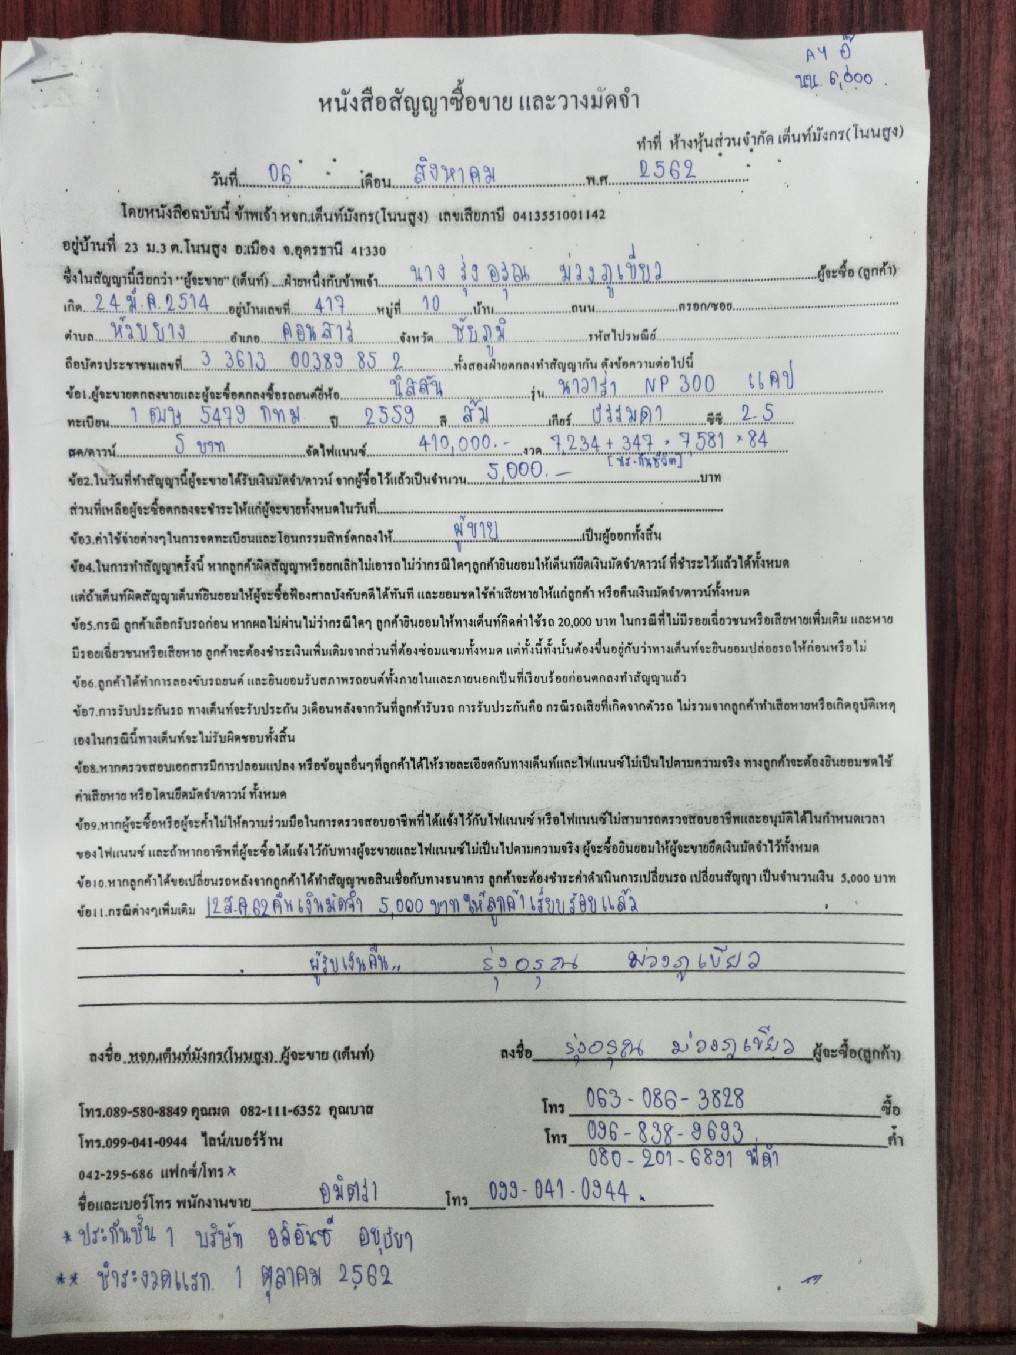 AY อี๊
นน. 6,000
หนังสือสัญญาซื้อขาย และวางมัดจำ
ทำที่ ห้างหุ้นส่วนจำกัด เต็นท์มังกร(โนนสูง)
วันที่ 06 เดือน สิงหาคม พ.ศ. 2562
โดยหนังสือฉบับนี้ ข้าพเจ้า หจก.เต็นท์มังกร(โนนสูง) เลขเสียภาษี 0413551001142
อยู่บ้านที่ 23 ม.3 ต.โนนสูง อ.เมือง จ.อุดรธานี 41330
ซึ่งในสัญญานี้เรียกว่า "ผู้จะขาย" (เต็นท์) ....ฝ่ายหนึ่งกับข้าพเจ้า นาง รุ่งอรุณ ม่วงภูเขียว ผู้จะซื้อ (ลูกค้า)
เกิด 24 มี.ค. 2514 อยู่บ้านเลขที่ 417 หมู่ที่ 10 บ้าน ถนน ตรอก/ซอย
ตำบล ห้วยยาง อำเภอ คอนสาร จังหวัด ชัยภูมิ รหัสไปรษณีย์
ถือบัตรประชาชนเลขที่ 3 3613 00389 85 2 ทั้งสองฝ่ายตกลงทำสัญญากัน ดังข้อความต่อไปนี้
ข้อ1.ผู้จะขายตกลงขายและผู้จะซื้อตกลงซื้อรถยนต์ยี่ห้อ นิสสัน รุ่น นาวาร่า NP 300 แคป
ทะเบียน 1 ฒษ 5479 กทม. ปี 2559 สี ส้ม เกียร์ ธรรมดา ซีซี 2.5
สด/ดาวน์ 5 บาท จัดไฟแนนซ์ 410,000.- งวด 7,234 + 347 = 7,581 × 84
ข้อ2.ในวันที่ทำสัญญานี้ผู้จะขายได้รับเงินมัดจำ/ดาวน์ จากผู้ซื้อไว้แล้วเป็นจำนวน 5,000.- บาท
ส่วนที่เหลือผู้จะซื้อตกลงจะชำระให้แก่ผู้จะขายทั้งหมดในวันที่
ข้อ3.ค่าใช้จ่ายต่างๆในการจดทะเบียนและโอนกรรมสิทธ์ตกลงให้ ผู้ขาย เป็นผู้ออกทั้งสิ้น
ข้อ4.ในการทำสัญญาครั้งนี้ หากลูกค้าผิดสัญญาหรือยกเลิกไม่เอารถไม่ว่ากรณีใดๆลูกค้ายินยอมให้เต็นท์ยึดเงินมัดจำ/ดาวน์ ที่ชำระไว้แล้วได้ทั้งหมด
แต่ถ้าเต็นท์ผิดสัญญาเต็นท์ยินยอมให้ผู้จะซื้อฟ้องศาลบังคับคดีได้ทันที และยอมชดใช้ค่าเสียหายให้แก่ลูกค้า หรือคืนเงินมัดจำ/ดาวน์ทั้งหมด
ข้อ5.กรณี ลูกค้าเลือกรับรถก่อน หากผลไม่ผ่านไม่ว่ากรณีใดๆ ลูกค้ายินยอมให้ทางเต็นท์คิดค่าใช้รถ 20,000 บาท ในกรณีที่ไม่มีรอยเฉี่ยวชนหรือเสียหายเพิ่มเติม และหาย
มีรอยเฉี่ยวชนหรือเสียหาย ลูกค้าจะต้องชำระเงินเพิ่มเติมจากส่วนที่ต้องซ่อมแซมทั้งหมด แต่ทั้งนี้ทั้งนั้นต้องขึ้นอยู่กับว่าทางเต็นท์จะยินยอมปล่อยรถให้ก่อนหรือไม่
ข้อ6.ลูกค้าได้ทำการลองขับรถยนต์ และยินยอมรับสภาพรถยนต์ทั้งภายในและภายนอกเป็นที่เรียบร้อยก่อนตกลงทำสัญญาแล้ว
ข้อ7.การรับประกันรถ ทางเต็นท์จะรับประกัน 3เดือนหลังจากวันที่ลูกค้ารับรถ การรับประกันคือ กรณีรถเสียที่เกิดจากตัวรถ ไม่รวมจากลูกค้าทำเสียหายหรือเกิดอุบัติเหตุ
เองในกรณีนี้ทางเต็นท์จะไม่รับผิดชอบทั้งสิ้น
ข้อ8.หากตรวจสอบเอกสารมีการปลอมแปลง หรือข้อมูลอื่นๆที่ลูกค้าได้ให้รายละเอียดกับทางเต็นท์และไฟแนนซ์ไม่เป็นไปตามความจริง ทางลูกค้าจะต้องยินยอมชดใช้
ค่าเสียหาย หรือโดนยึดมัดจำ/ดาวน์ ทั้งหมด
ข้อ9.หากผู้จะซื้อหรือผู้จะค้ำไม่ให้ความร่วมมือในการตรวจสอบอาชีพที่ได้แจ้งไว้กับไฟแนนซ์ หรือไฟแนนซ์ไม่สามารถตรวจสอบอาชีพและอนุมัติได้ในกำหนดเวลา
ของไฟแนนซ์ และถ้าหากอาชีพที่ผู้จะซื้อได้แจ้งไว้กับทางผู้จะขายและไฟแนนซ์ไม่เป็นไปตามความจริง ผู้จะซื้อยินยอมให้ผู้จะขายยึดเงินมัดจำไว้ทั้งหมด
ข้อ10.หากลูกค้าได้ขอเปลี่ยนรถหลังจากลูกค้าได้ทำสัญญาขอสินเชื่อกับทางธนาคาร ลูกค้าจะต้องชำระค่าดำเนินการเปลี่ยนรถ เปลี่ยนสัญญา เป็นจำนวนเงิน 5,000 บาท
ข้อ11.กรณีต่างๆเพิ่มเติม 12 ส.ค. 62 คืนเงินมัดจำ 5,000 บาท ให้ลูกค้าเรียบร้อยแล้ว
ผู้รับเงินคืน.. รุ่งอรุณ ม่วงภูเขียว
ลงชื่อ หจก.เต็นท์มังกร(โนนสูง) ผู้จะขาย (เต็นท์) ลงชื่อ รุ่งอรุณ ม่วงภูเขียว ผู้จะซื้อ(ลูกค้า)
โทร.089-580-8849 คุณมด 082-111-6352 คุณบาส โทร 063-086-3828 ซื้อ
โทร.099-041-0944 ไลน์/เบอร์ร้าน โทร 096-838-9693 ค้ำ
080-201-6891 พี่ดำ
042-295-686 แฟกซ์/โทร ×
ชื่อและเบอร์โทร พนักงานขาย อมิตรา โทร 099-041-0944.
* ประกันชั้น 1 บริษัท อลิอันซ์ อยุธยา
** ชำระงวดแรก 1 ตุลาคม 2562